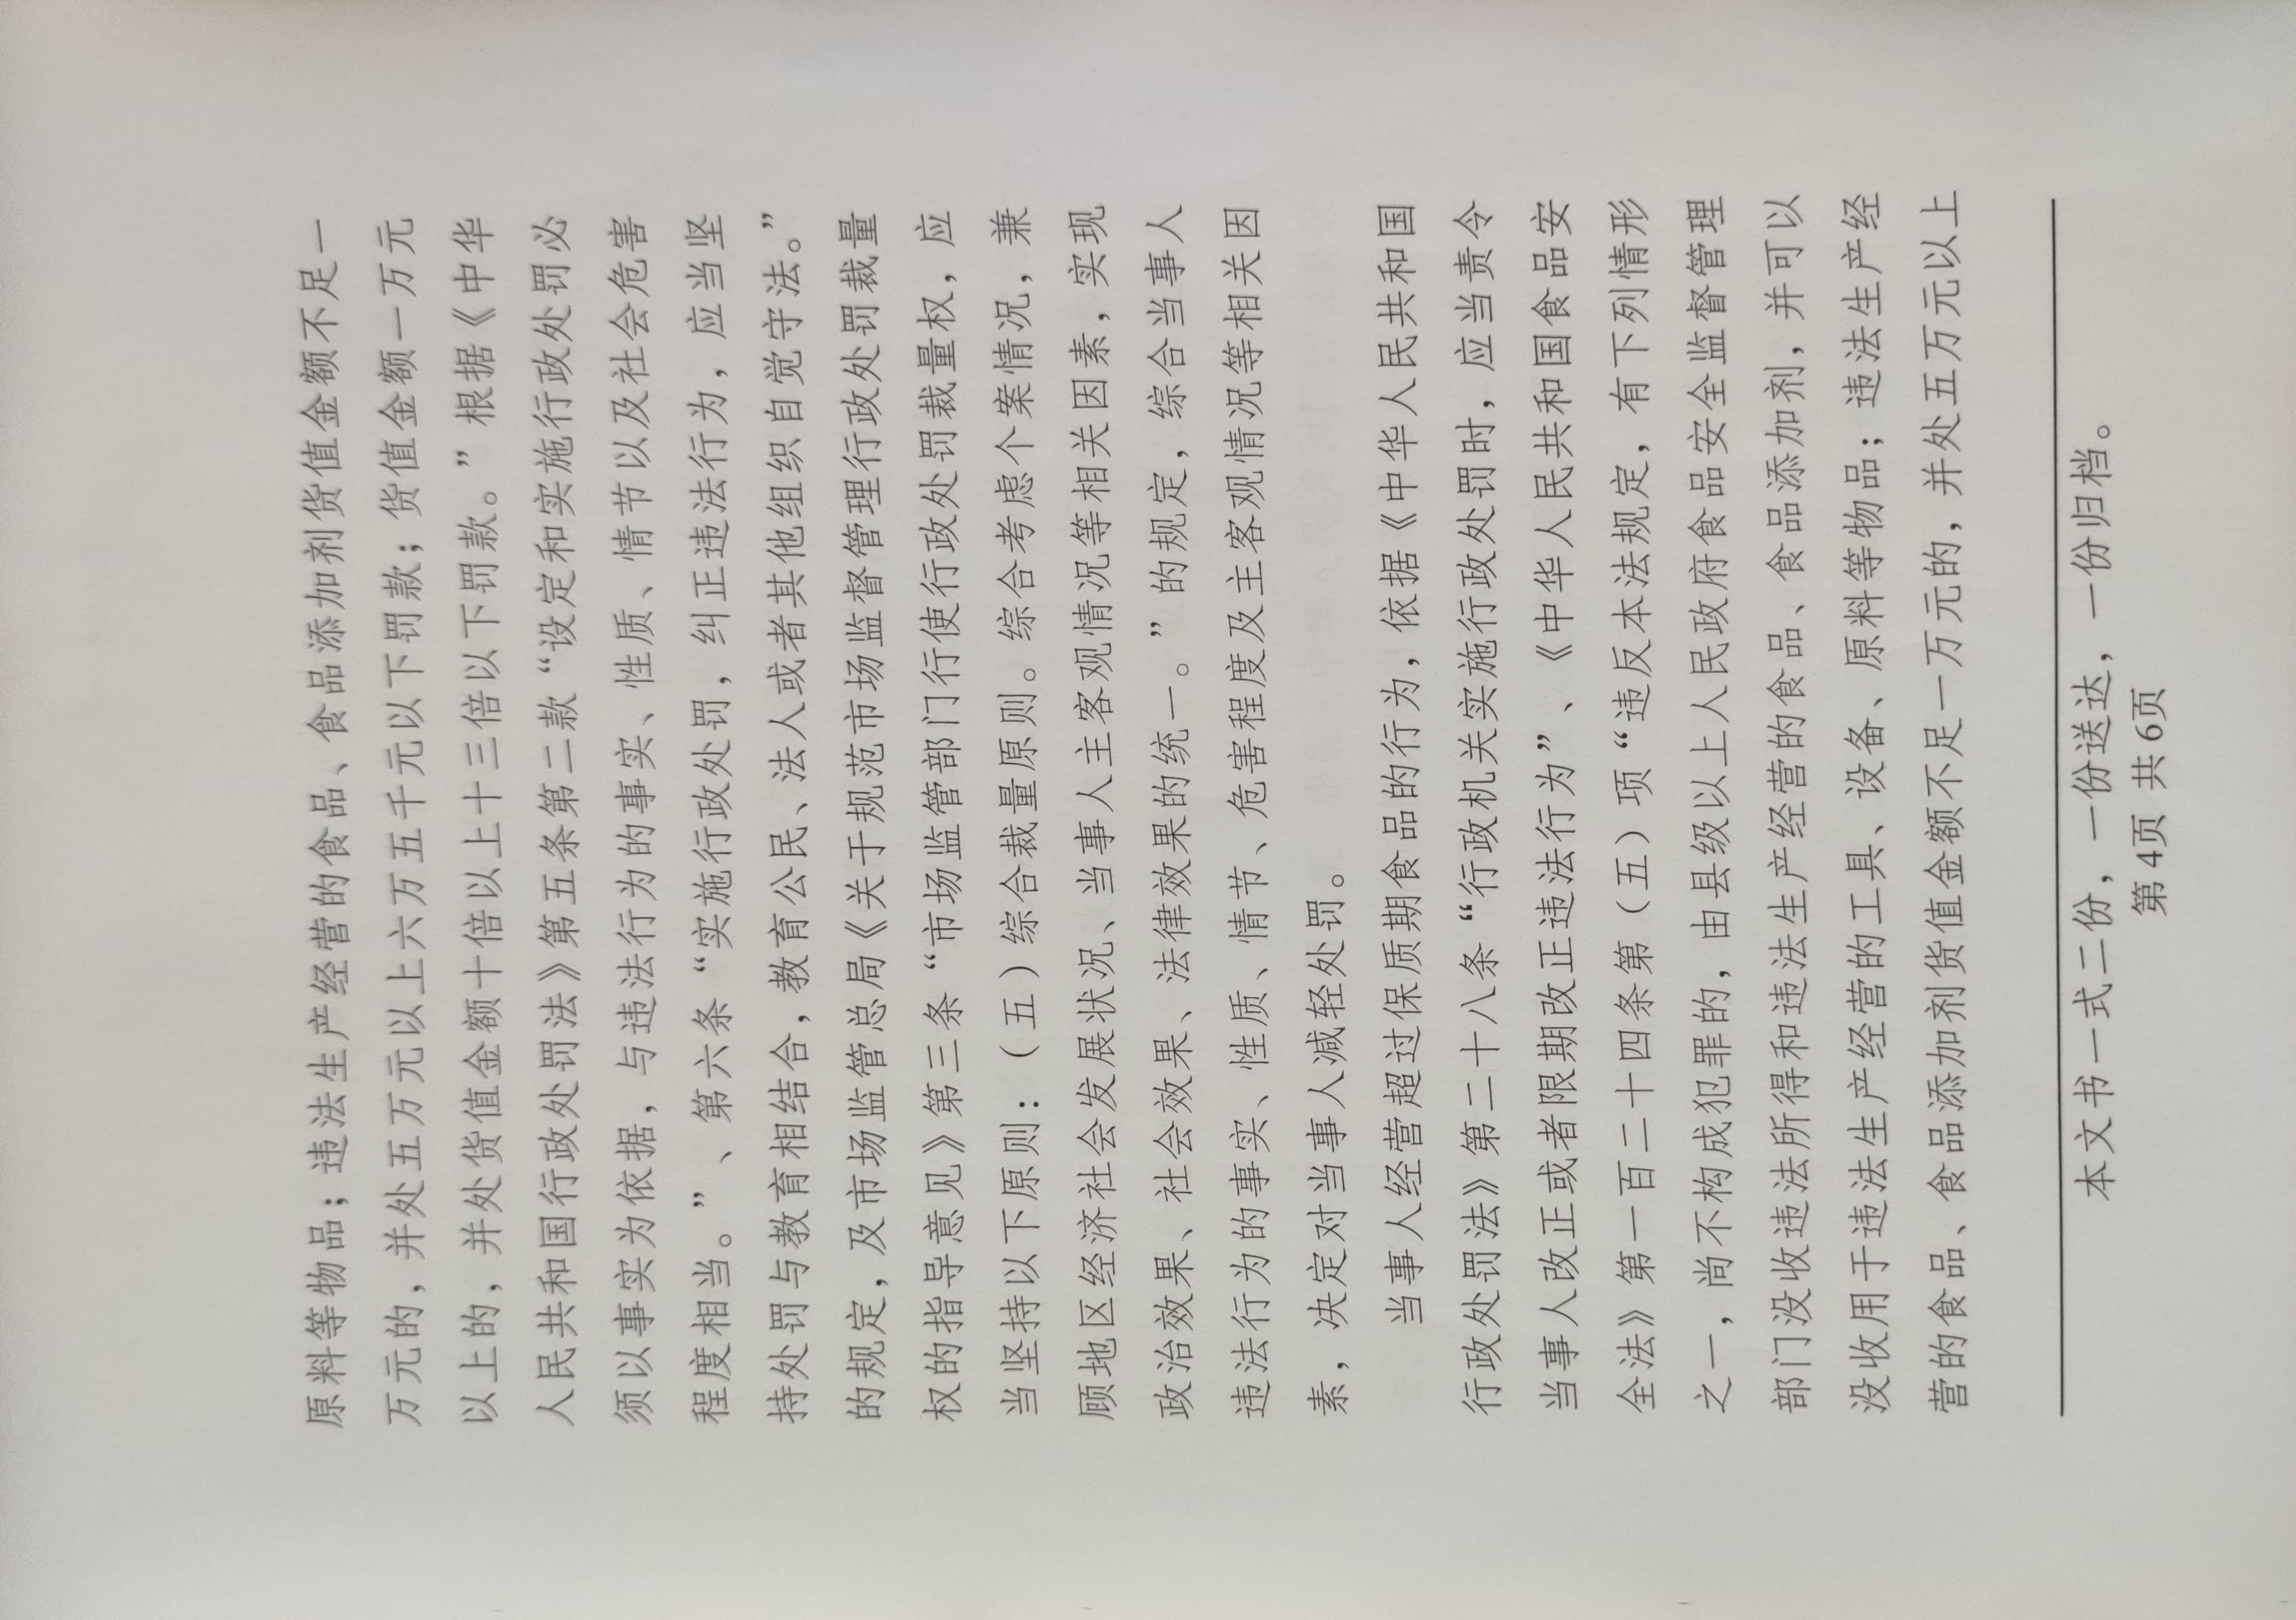 原料等物品；违法生产经营的食品、食品添加剂货值金额不足一
万元的，并处五万元以上六万五千元以下罚款；货值金额一万元
以上的，并处货值金额十倍以上十三倍以下罚款。”根据《中华
人民共和国行政处罚法》第五条第二款“设定和实施行政处罚必
须以事实为依据，与违法行为的事实、性质、情节以及社会危害
程度相当。”、第六条“实施行政处罚，纠正违法行为，应当坚
持处罚与教育相结合，教育公民、法人或者其他组织自觉守法。”
的规定，及市场监管总局《关于规范市场监督管理行政处罚裁量
权的指导意见》第三条“市场监管部门行使行政处罚裁量权，应
当坚持以下原则：（五）综合裁量原则。综合考虑个案情况，兼
顾地区经济社会发展状况、当事人主客观情况等相关因素，实现
政治效果、社会效果、法律效果的统一。”的规定，综合当事人
违法行为的事实、性质、情节、危害程度及主客观情况等相关因
素，决定对当事人减轻处罚。
当事人经营超过保质期食品的行为，依据《中华人民共和国
行政处罚法》第二十八条“行政机关实施行政处罚时，应当责令
当事人改正或者限期改正违法行为”、《中华人民共和国食品安
全法》第一百二十四条第（五）项“违反本法规定，有下列情形
之一，尚不构成犯罪的，由县级以上人民政府食品安全监督管理
部门没收违法所得和违法生产经营的食品、食品添加剂，并可以
没收用于违法生产经营的工具、设备、原料等物品；违法生产经
营的食品、食品添加剂货值金额不足一万元的，并处五万元以上
本文书一式二份，一份送达，一份归档。
第4页 共6页